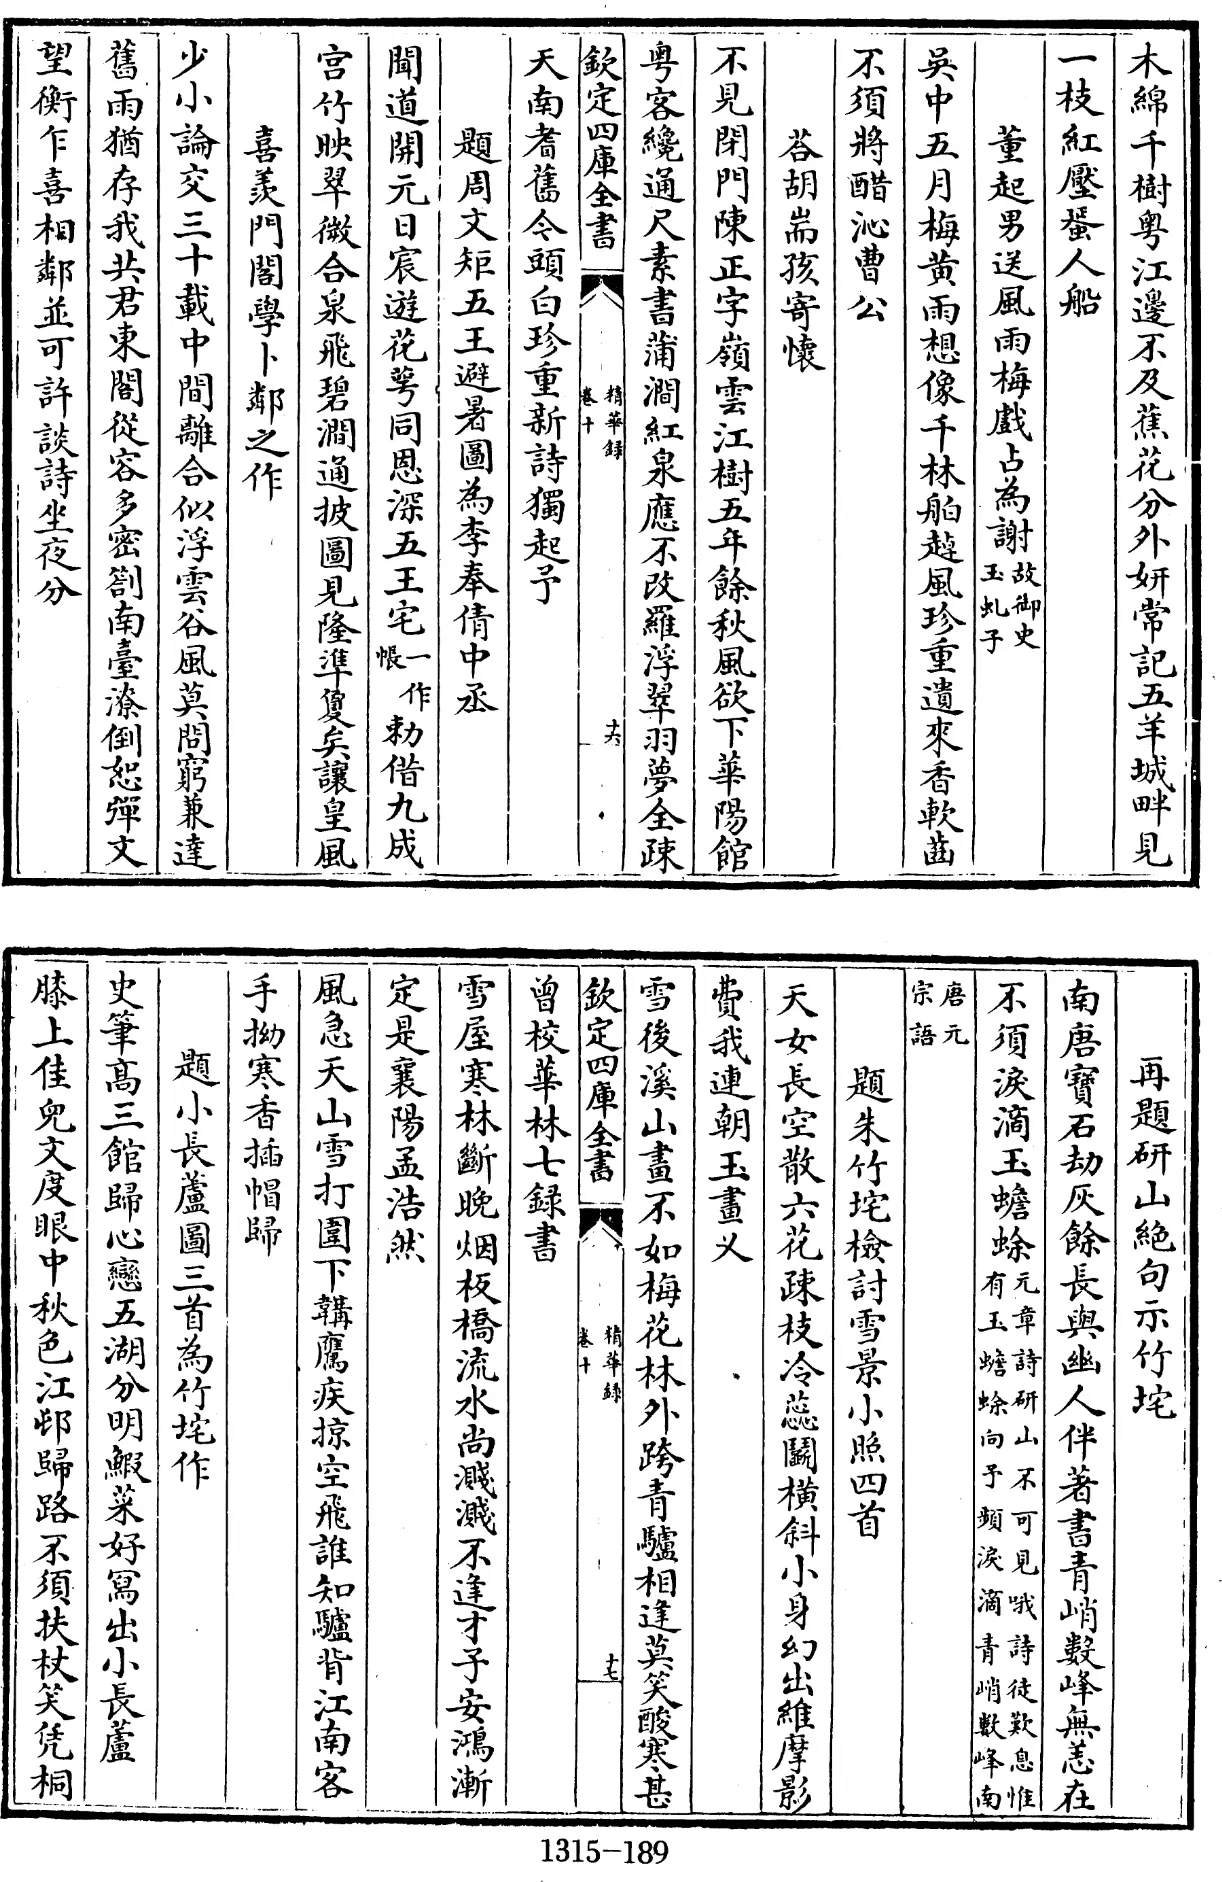 木綿千樹粤江邊不及蕉花分外妍常記五羊城畔見
一枝紅壓蜑人船
董起男送風雨梅戲占為謝故御史玉虬子
吳中五月梅黄雨想像千林舶趠風珍重遺來香軟齒
不須將醋沁曹公
荅胡耑孩寄懷
不見閉門陳正字嶺雲江樹五年餘秋風欲下華陽館
粤客纔通尺素書蒲澗紅泉應不改羅浮翠羽夢全疎
欽定四庫全書 精華録 卷十 十六
天南耆舊今頭白珍重新詩獨起予
題周文矩五王避暑圖為李奉倩中丞
聞道開元日宸遊花萼同恩深五王宅一作帳勅借九成
宫竹映翠微合泉飛碧澗通披圖見隆準敻矣讓皇風
喜羨門閣學卜鄰之作
少小論交三十載中間離合似浮雲谷風莫問窮兼達
舊雨猶存我共君東閣從容多密劄南臺潦倒恕彈文
望衡乍喜相鄰並可許談詩坐夜分
再題研山絶句示竹垞
南唐寶石劫灰餘長與幽人伴著書青峭數峰無恙在
不須淚滴玉蟾蜍元章詩研山不可見哦詩徒歎息惟有玉蟾蜍向予頻淚滴青峭數峰南
唐元宗語
題朱竹垞檢討雪景小照四首
天女長空散六花疎枝冷蕊鬭橫斜小身幻出維摩影
費我連朝玉畫叉
雪後溪山畫不如梅花林外跨青驢相逢莫笑酸寒甚
欽定四庫全書 精華録 卷十 十七
曾校華林七録書
雪屋寒林斷晚烟板橋流水尚濺濺不逢才子安鴻漸
定是襄陽孟浩然
風急天山雪打圍下韝鷹疾掠空飛誰知驢背江南客
手拗寒香插帽歸
題小長蘆圖三首為竹垞作
史筆髙三館歸心戀五湖分明鰕菜好寫出小長蘆
膝上佳兒文度眼中秋色江邨歸路不須扶杖笑凭桐
1315-189